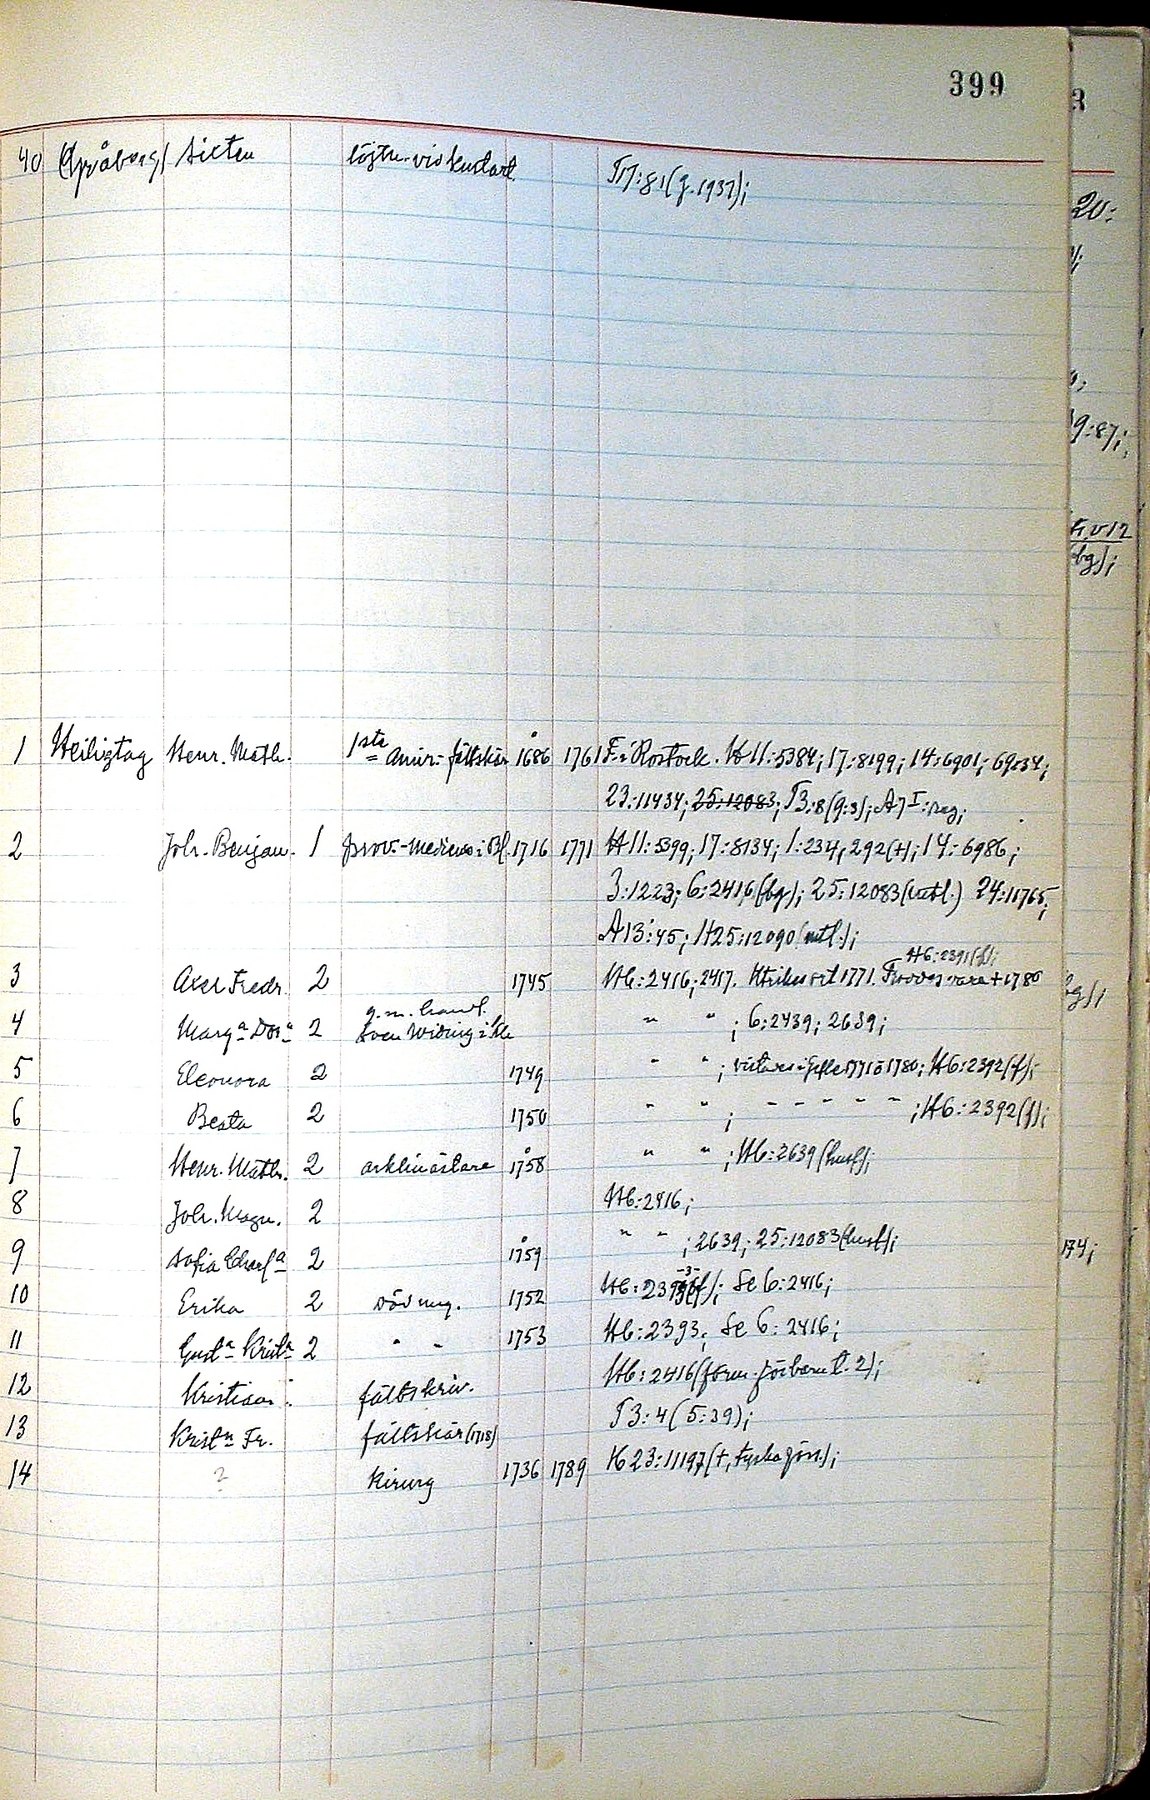 399
40 Sixten löjtn. vid kustart. T17:81 (g. 1937);
1 Heiligtag Henr. Math. 1ste amir:-fältskär 1686 1761 F. i Rostock. H11:5384; 17:8199; 14:6901; 6934;
23:11434; 25:12083; T3:8 (9:3); A7 I: reg;
2 Joh. Benjam. 1 prov.-medicus i Bl. 1716 1771 H11:5399; 17:8134; 1:234, 292 (+); 14:6986;
3:1223; 6:2416 (bg); 25:12083 (utl.) 24:11765;
A13:45; H25:12090 (utl.);
H6:2391 (f);
3 Axel Fredr. 2 1745 H6:2416; 2417. 1771. + 1786
g. m. handl.
4 Marg:a Dor:a 2 Sven Widing i " " ; 6:2439; 2639;
5 Eleonora 2 1749 " " ; vistas i Gefle 1771 o 1780; H6:2392 (f);
6 Beata 2 1750 " " ; - - - - - ; H6:2392 (f);
7 Henr. Math. 2 arklimästare 1758 " " ; H6:2639 (husf);
8 Joh. Magn. 2 H6:2416;
9 Sofia Charl:a 2 1759 " " ; 2639; 25:12083 (husf);
10 Erika 2 död ung. 1752 H6:239 -3- (f); Se 6:2416;
11 Gust:a Krist:a 2 " " 1753 H6:2393; Se 6:2416;
12 Kristian fältskär. H6:2416 (form. för barn t. 2);
13 Krist:n Fr. fältskär (1718) T3:4 (5:39);
14 ? Kirurg 1736 1789 K23:11197 (+, tyska förs.);
3
20:
9:87;
bg);
bg);
174;